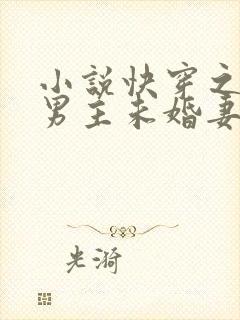 小說快穿之
男主未婚妻
光漪